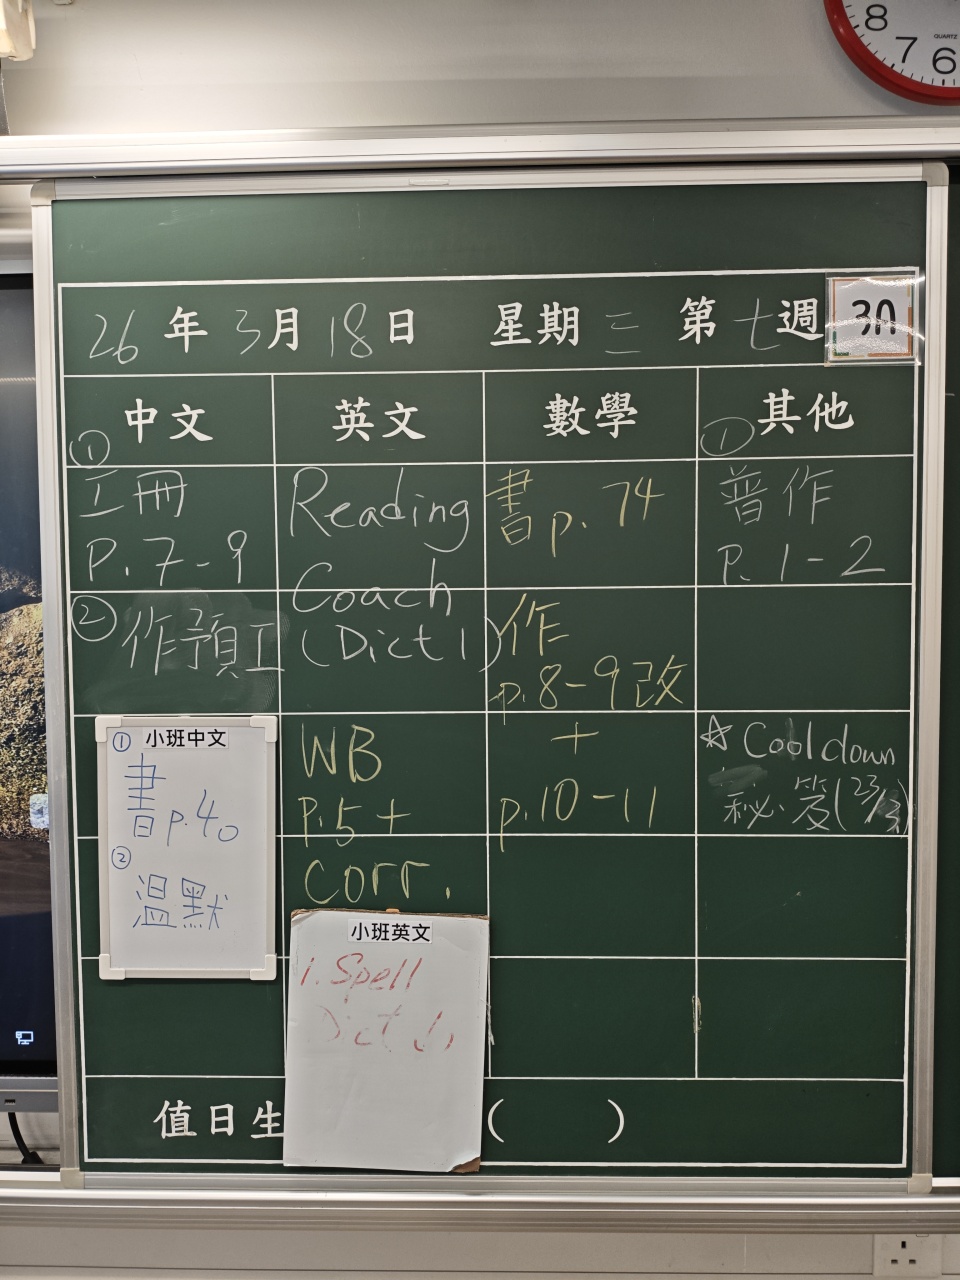 26年3月18日 星期三 第七週 3A
中文 英文 數學 其他
①
工冊
P.7-9
②
作預工
小班中文
①
書p.40
②
溫默
Reading
Coach
(Dict 1)
WB
P.5+
Corr.
小班英文
1. Spell
Dict 1,
書p.74
作
p.8-9改
+
p.10-11
①
普作
P.1-2
☆ Cool down
秘.答(23/3)
值日生 ( )
8
7
6
QUARTZ